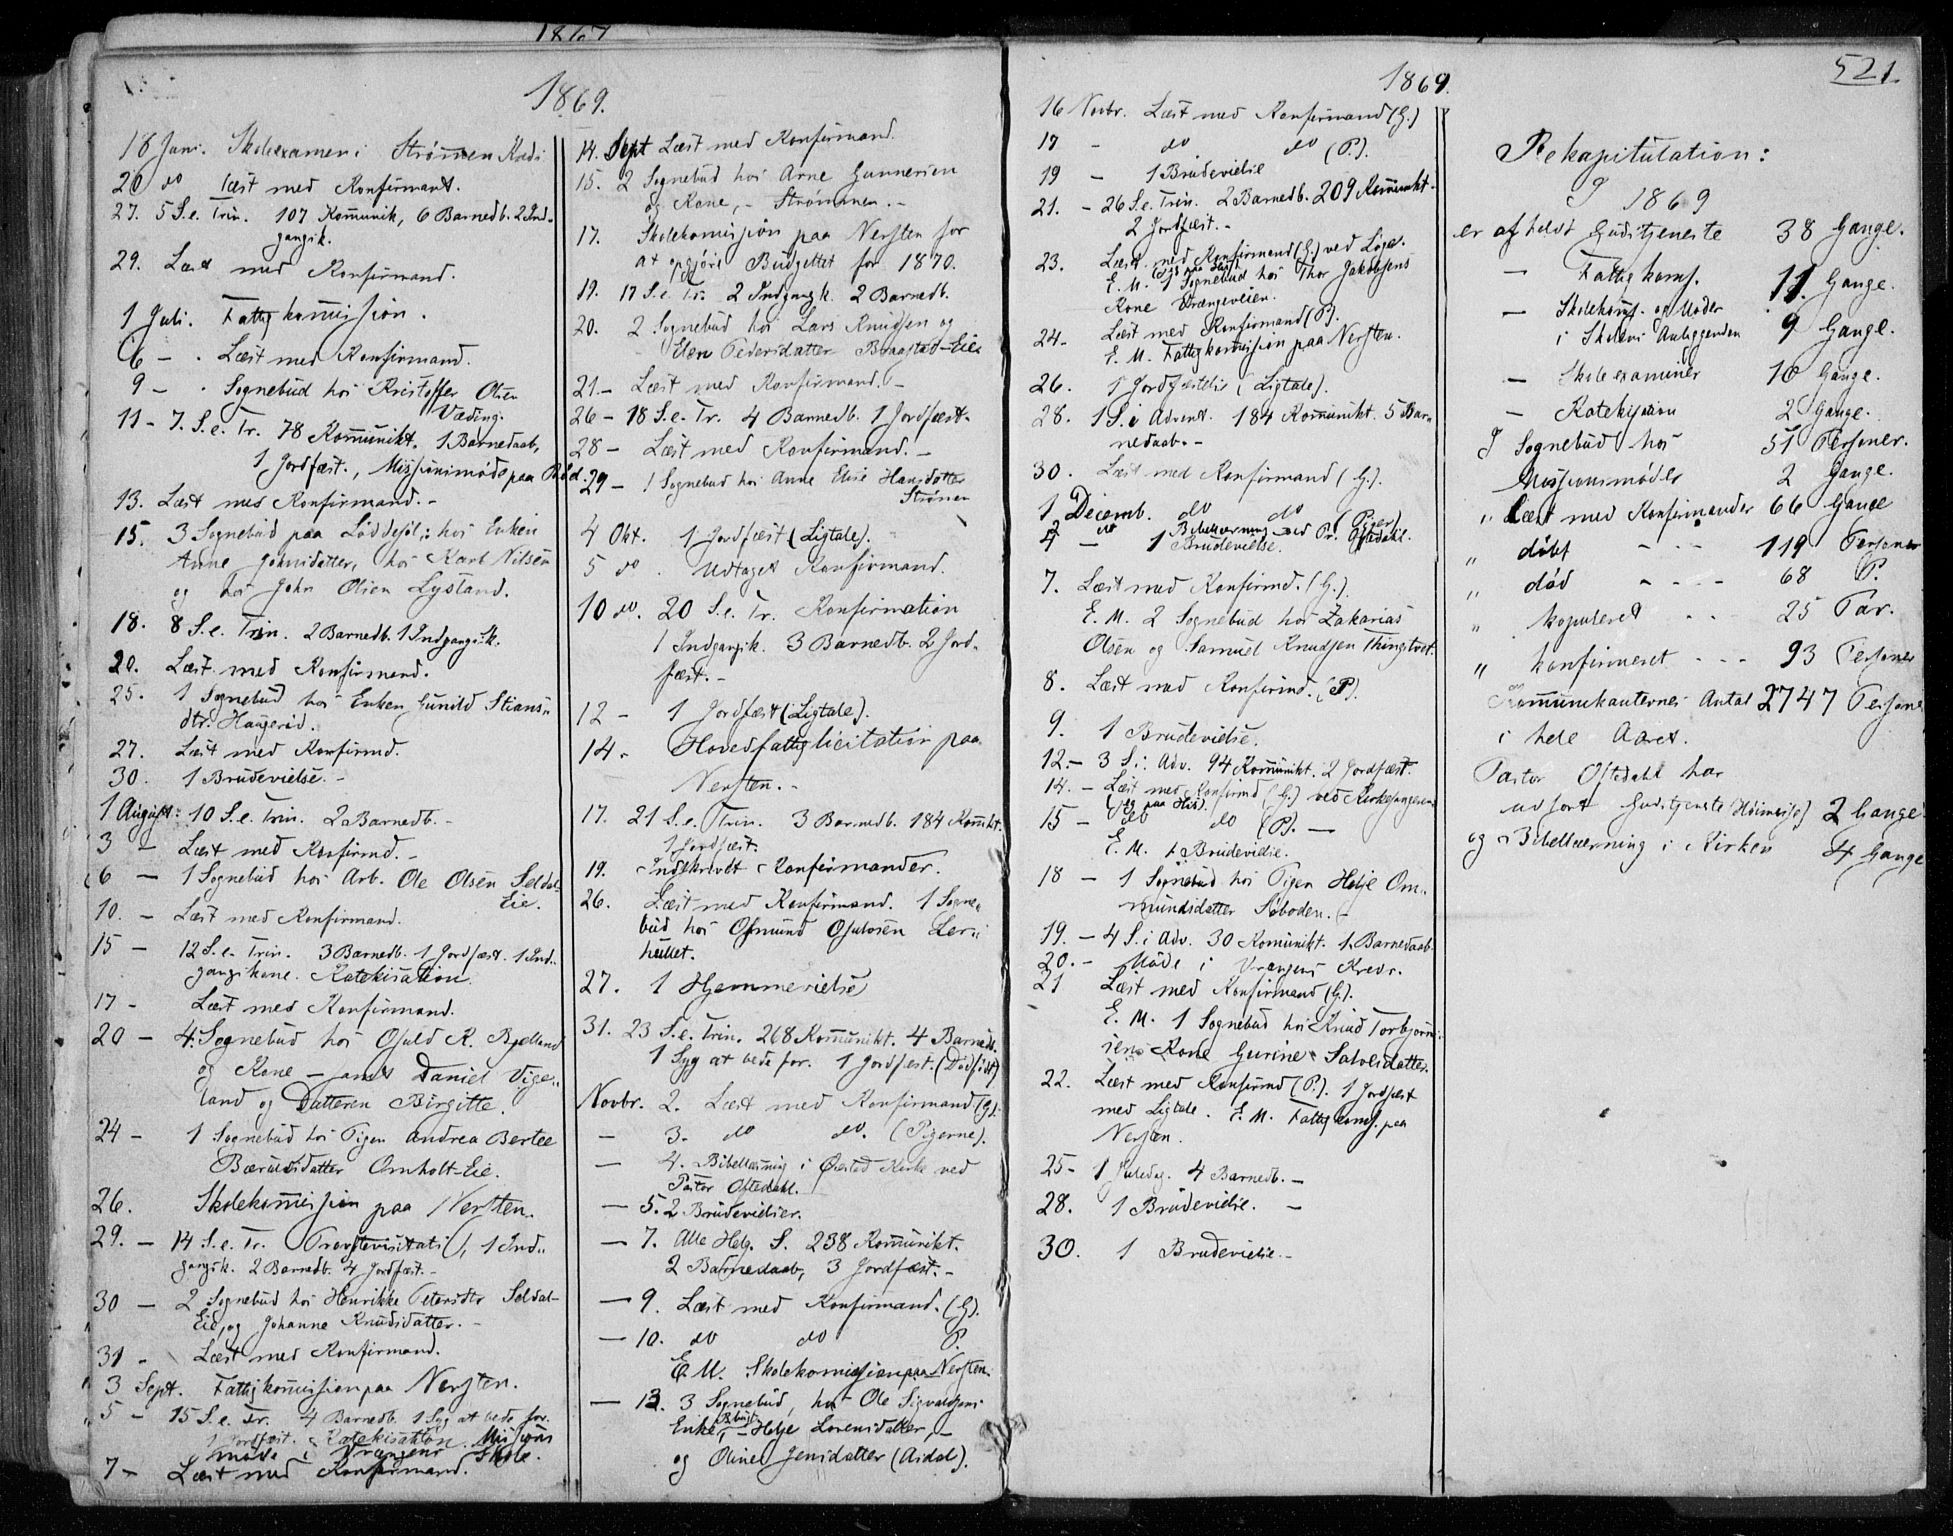 1867
1869.
18 Juni. Skoleexamen i Strømen Kreds.
20 do Læst med Konfirmant.
27. 5 S. e. Trin. 107 Komunik, 6 Barnedb. 2 Ind„
gangsk.
29. Læst med Konfirmand.
1 Juli. Fattigkommission.
6 – . Læst med Konfirmand.
9 – . Sognebud hos Kristoffer Olsen
Væding.
11 – 7. S. e. Tr. 78 Komunikt. 1 Barnedaab,
1 Jordfæst., Missionsmøde paa Bød.
13. Læst med Konfirmand. –
15. 3 Sognebud paa Løddesøl: hos Enken
Anne Johnsdatter, hos Karl Nilsen
og hos John Olsen Lystand.
18. 8 S. e. Trin. 2 Barnedb. 1 Indgangsk.
20. Læst med Konfirmand.
25. 1 Sognebud hos Enken Gunild Stians„
dtr. Haugerid.
27. Læst med Konfirmd.
30. 1 Brudevielse. –
1 August: 10 S. e. Trin. 2 Barnedb. –
3 – Læst med Konfirmd. –
6 – 1 Sognebud hos Arb. Ole Olsen Seldal
Eie.
10. – Læst med Konfirmand.
15 – 12 S. e. Trin. 3 Barnedb. 1 Jordfæst. 1 Ind„
gangskone. Katekisation.
17 – Læst med Konfirmand.
20 – 4. Sognebud hos Osuld K. Bjelland
og Kone – samt Daniel Vige„
land og Datteren Birgitte.
24 – 1 Sognebud hos Pigen Andrea Bertee
Bærulsdatter Omholt-Eie.
26. Skolekomission paa Nersten.
29. – 14 S. e. Tr. Provstevisitats, 1 Ind„
gangsk. 2 Barnedb. 4 Jordfæst. –
30 – 2 Sognebud hos Henrikke Petersdtr Seldal-
Eie, og Johanne Knudsdatter. –
31 – Læst med Konfirmand.
3 Sept. Fattigkommission paa Nersten.
5 – 15 S. e. Tr. 4 Barnedb. 1 Syg at bede for.
1 Jordfæst. Katekisation. Missions
møde i Vrængens Skole.
7 – Læst med Konfirmand.
14. Sept Læst med Konfirmand.
15. 2 Sognebud hos Arne Gunnersen
og Kone, – Strømmen. –
17. Skolekomission paa Nersten for
at opgjøre Budgettet for 1870.
19. 17 S. e. Tr. 2 Indgangk. 2 Barnedb.
20. 2 Sognebud hos Lars Knudsen og
Elen Pedersdatter Braastad-Eie.
21 – Læst med Konfirmand. –
26 – 18 S. e. Tr. 4 Barnedb. 1 Jordfæst.
28 – Læst med Konfirmand. –
29 – 1 Sognebud hos Anne Elise Hansdatter
Strømen
4 Okt. 1 Jordfæst (Ligtale).
5 do . Udtaget Konfirmand.
10 do. 20 S. e. Tr. Konfirmation
1 Indgangsk. 3 Barnedb. 2 Jord„
fæst. –
12 – 1 Jordfæst (Ligtale).
14 – Hovedfattiglicitation paa
Nersten. –
17. 21 S. e. Trin. 3 Barnedb. 184 Komkt.
1 Jordfæst.
19. Indskrevet Konfirmander.
26. Læst med Konfirmand. 1 Sogne„
bud hos Osmund Osulvsen Ler„
hullet.
27. 1 Hjemmevielse
31. 23 S. e. Trin. 268 Komunikt. 4 Barnedb.
1 Syg at bede for. 1 Jordfæst. (Dødfødt)
Novbr. 2. Læst med Konfirmand (G).
– 3. do do. (Pigerne).
– 4. Bibellæsning i Øiestad Kirke ved
Pastor Oftedahl.
– 5. 2 Brudevielser.
– 7. Alle Helg. S. 238 Komunikt.
2 Barnedaab, 3 Jordfæst. –
– 9. Læst med Konfirmand. (G).
– 10. do do P.
E. M. Skolekomission paa Nersten.
– 13. 3 Sognebud, hos Ole Sigvaldsens
Enke, – Helje Lorensdatter, –
og Oline Jensdatter (Asdal).
1869.
521.
16 Novbr. Læst med Konfirmand (G.)
17 – do do (P.).
19 – 1 Brudevielse
21. – 26 S. e. Trin. 2 Barnedb. 209 Komunkt.
2 Jordfæst. –
23. Læst med Konfirmand (G.) ved Lige.
(jeg paa His).
E. M. 1 Sognebud hos Thor Jakobsens
Kone Vrængeveien.
24 – Læst med Konfirmand (P).
E. M. Fattigkommission paa Nersten.
26. 1 Jordfæstelse (Ligtale).
28. 1 S. i Advent. 184 Komunikt. 5 Bar„
nedaab. –
30. Læst med Konfirmand (G.).
1 Decemb. do do (Piger).
2 do Bibellæsning ved Pr. Oftedahl.
4 – 1 Brudevielse.
7. Læst med Konfirmd. (G.).
E. M. 2 Sognebud hos Zakarias
Olsen og Samuel Knudsen Thingstvet.
8. Læst med Konfirmd. (P).
9. 1 Brudevielse.
12. – 3 S. i. Adv. 94 Komunikt. 2 Jordfæst.
14. – Læst med Konfirmd (G.) ved Kirkesangeren
(jeg paa His).
15 – do do (P). –
E. M. 1 Brudevielse.
18 – 1 Sognebud hos Pigen Helje Om„
mundsdatter Søboden. –
19. – 4 S. i Adv. 30 Komunikt. 1 Barnedaab
20. – Møde i Vrængens Kreds.
21 Læst med Konfirmand (G).
E. M. 1 Sognebud hos Knud Torbjørn„
sens Kone Gurine Salvesdatter.
22. Læst med Konfirmd (P.). 1 Jordfæst
med Ligtale. E. M. Fattigkoms. paa
Nersten.
25 – 1 Juledag. 4 Barnedb. –
28. 1 Brudevielse. –
30. 1 Brudevielse. –
Rekapitulation:
I 1869
er afholdt Gudstjeneste 38 Gange.
– Fattigkoms. 11. Gange.
– Skolekoms. og Møder
i Skolens Anliggender 9 Gange.
– Skoleexaminer 10 Gange.
– Katekision 2 Gange.
I Sognebud hos 51 Personer.
Missionsmøder 2 Gange.
„ Læst med Konfirmander 66 Gange
„ døbt – – – 119 Personer
„ død – – – – 68 P.
„ kopuleret – – – 25 Par.
„ konfirmeret – – – 93 Personer
Komunikanternes Antal 2747 Persone
i hele Aaret.
Pastor Oftedahl har
udført Gudstjeneste (Høimesse) 2 Gange
og Bibellæsning i Kirken 4 Gange